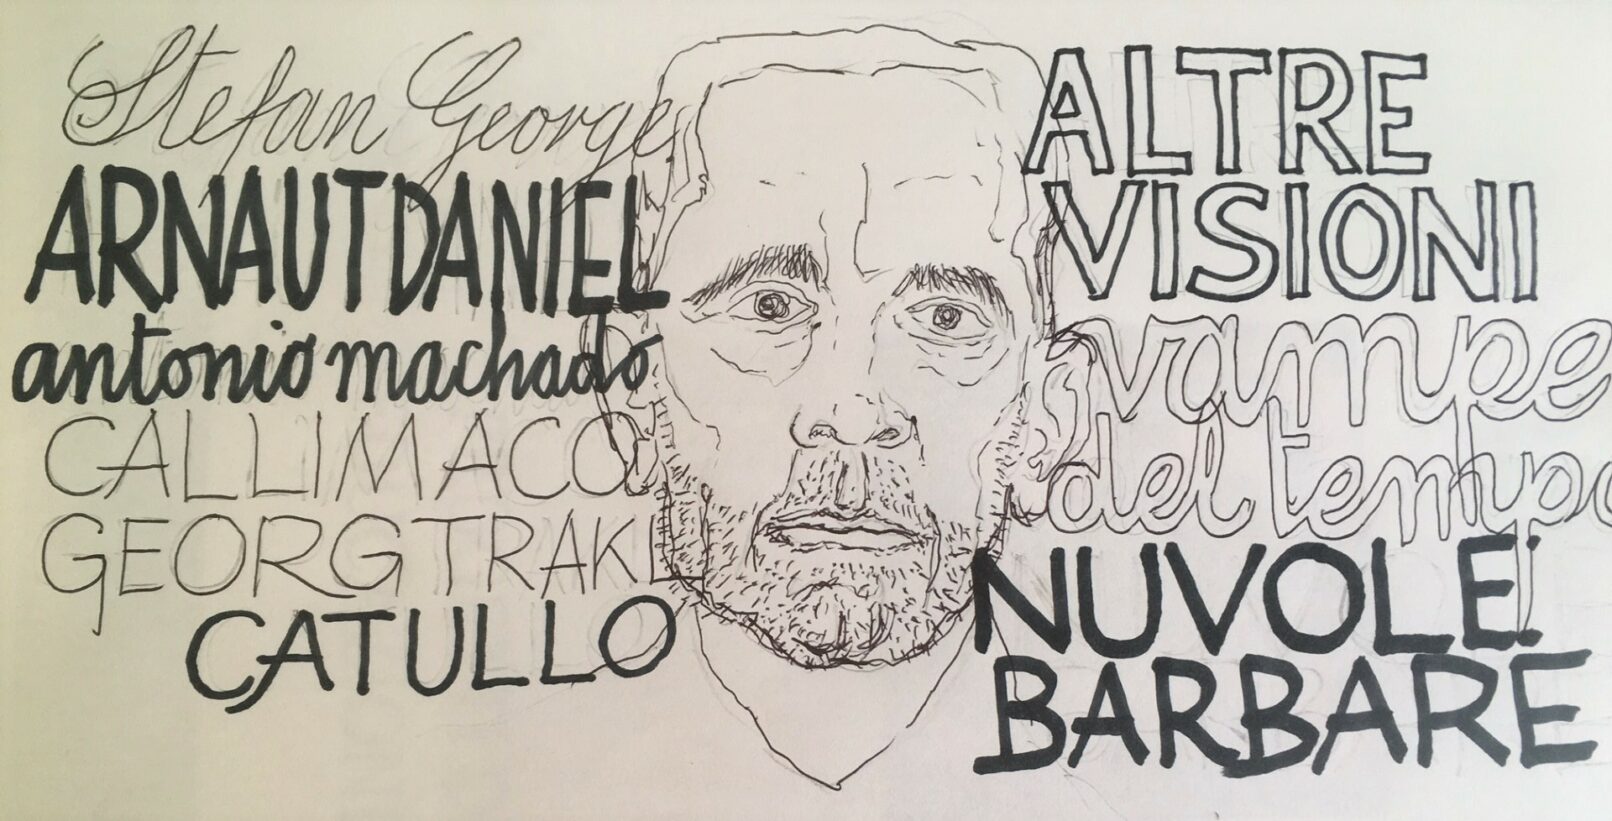 Stefan George
ARNAUT DANIEL
antonio machado
CALLIMACO
GEORG TRAKL
CATULLO
ALTRE
VISIONI
vampe
del tempo
NUVOLE
BARBARE